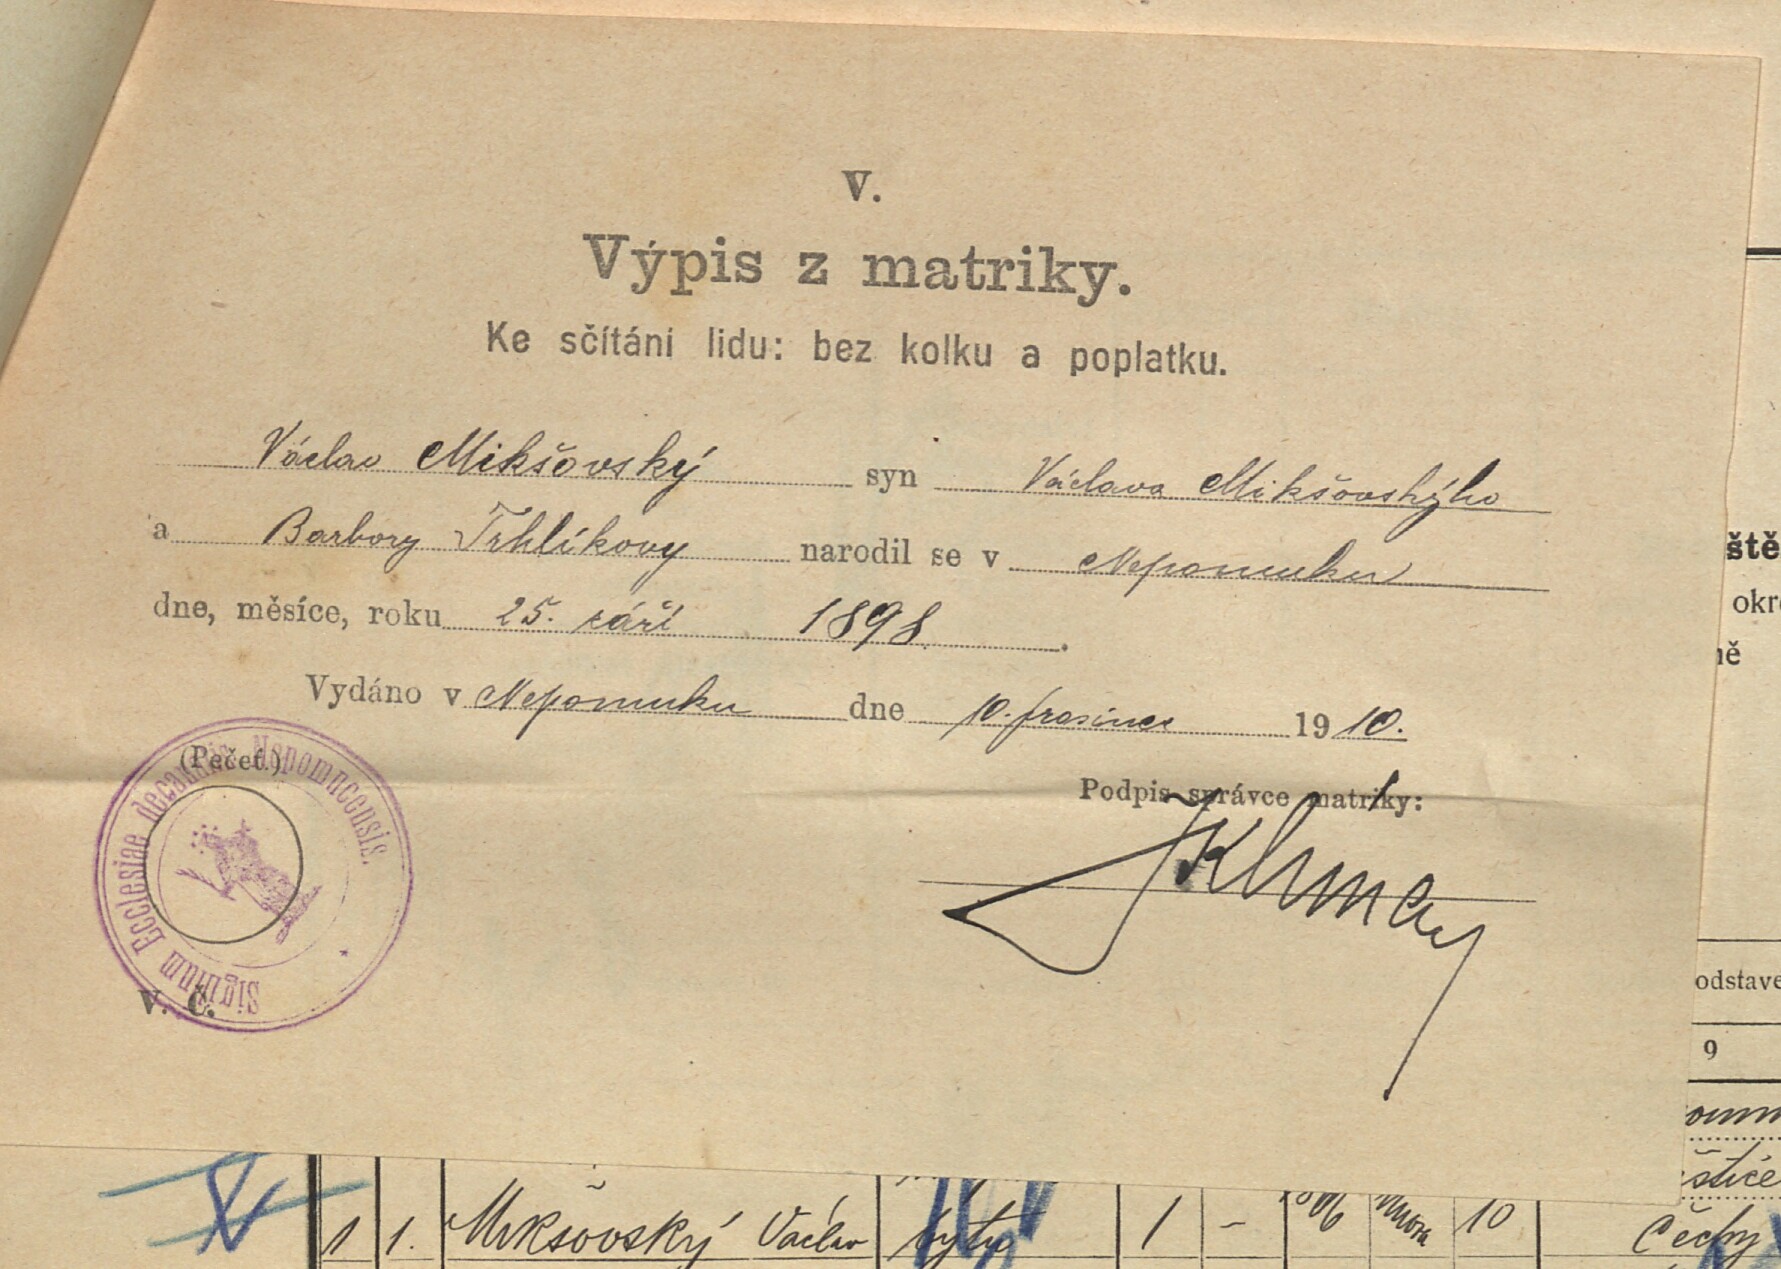 V.
Výpis z matriky.
Ke sčítání lidu: bez kolku a poplatku.
Václav Mikšovský syn Václava Mikšovskýho
a Barbory Trhlíkovy narodil se v Nepomuku
dne, měsíce, roku 25. září 1898.
Vydáno v Nepomuku dne 10. prosince 1910.
(Pečeť.)
Signum Ecclesiae decanalis Nepomucensis.
Podpis správce matriky:
V. Č.
ště
okre
ně
odstave
9
štice
1 1. Mikšovský Václav bytu 1 – 10 Čechy